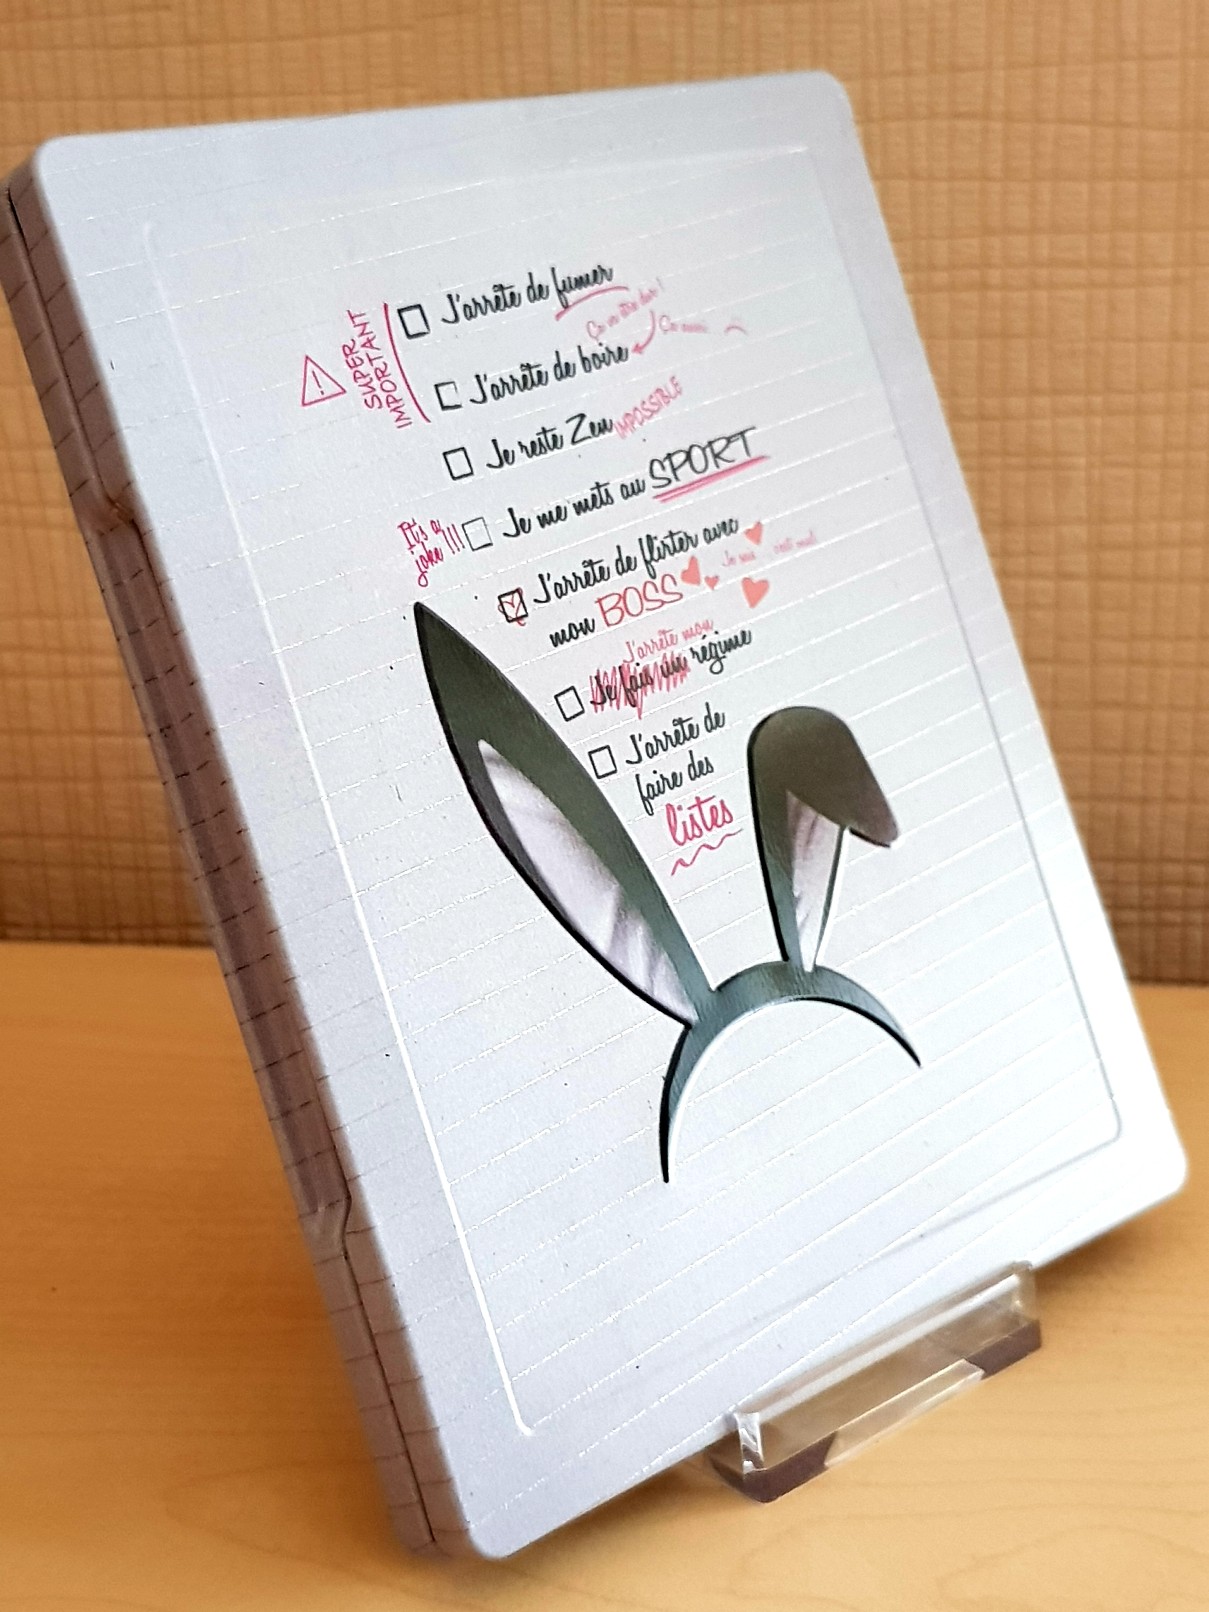 J'arrête de fumer
Ça va être dur !
SUPER
IMPORTANT
Ça aussi
J'arrête de boire
Je reste Zen IMPOSSIBLE
Je me mets au SPORT
It's a
joke !!!
J'arrête de flirter avec
mon BOSS
J'arrête mon
Je fais un régime
J'arrête de
faire des
listes